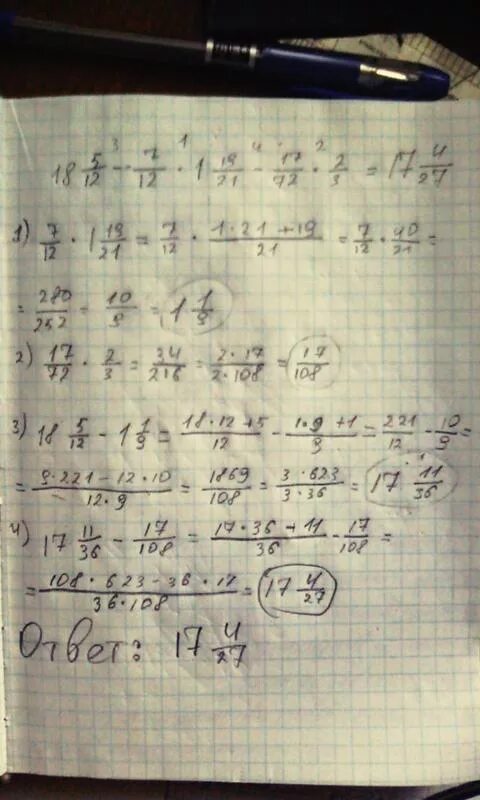 18 5/12 - 7/12 · 1 19/21 - 17/72 · 2/3 = 17 4/27
1) 7/12 · 1 19/21 = 7/12 · (1·21+19)/21 = 7/12 · 40/21 =
= 280/252 = 10/9 = 1 1/9
2) 17/72 · 2/3 = 34/216 = (2·17)/(2·108) = 17/108
3) 18 5/12 - 1 1/9 = (18·12+5)/12 - (1·9+1)/9 = 221/12 - 10/9 =
= (9·221-12·10)/(12·9) = 1869/108 = (3·623)/(3·36) = 17 11/36
4) 17 11/36 - 17/108 = (17·36+11)/36 - 17/108 =
= (108·623-36·17)/(36·108) = 17 4/27
Ответ: 17 4/27